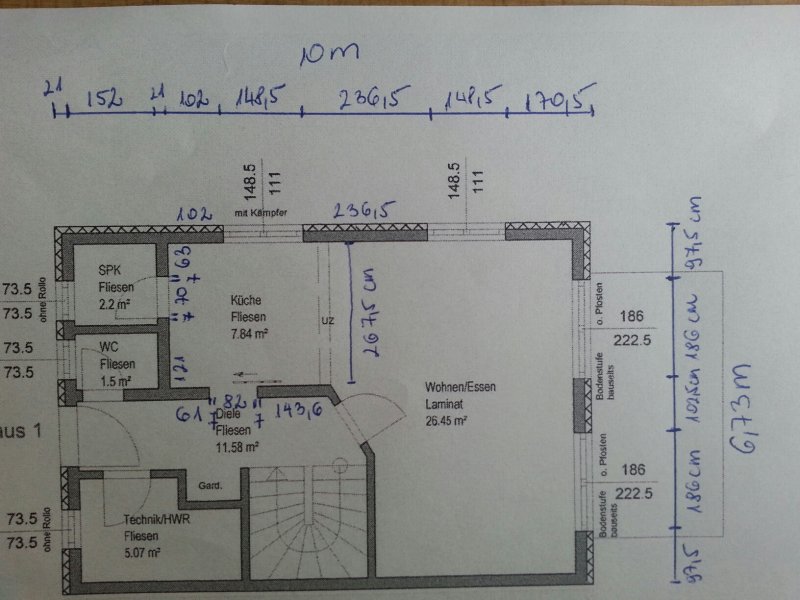 10 m
21 152 21 102 148,5 236,5 148,5 170,5
148.5
111
148.5
111
102
mit Kämpfer
236,5
97,5 cm
SPK
Fliesen
2.2 m²
63
7
70
7
121
Küche
Fliesen
7.84 m²
UZ
267,5 cm
73.5
73.5
ohne Rollo
WC
Fliesen
1.5 m²
73.5
73.5
o. Pfosten
186
222.5
Bodenstufe
bauseits
186 cm
102,5cm
6,73 m
Wohnen/Essen
Laminat
26.45 m²
61
7
82
7
143,6
aus 1
Diele
Fliesen
11.58 m²
Gard.
o. Pfosten
186
222.5
Bodenstufe
bauseits
186 cm
73.5
73.5
ohne Rollo
Technik/HWR
Fliesen
5.07 m²
97,5